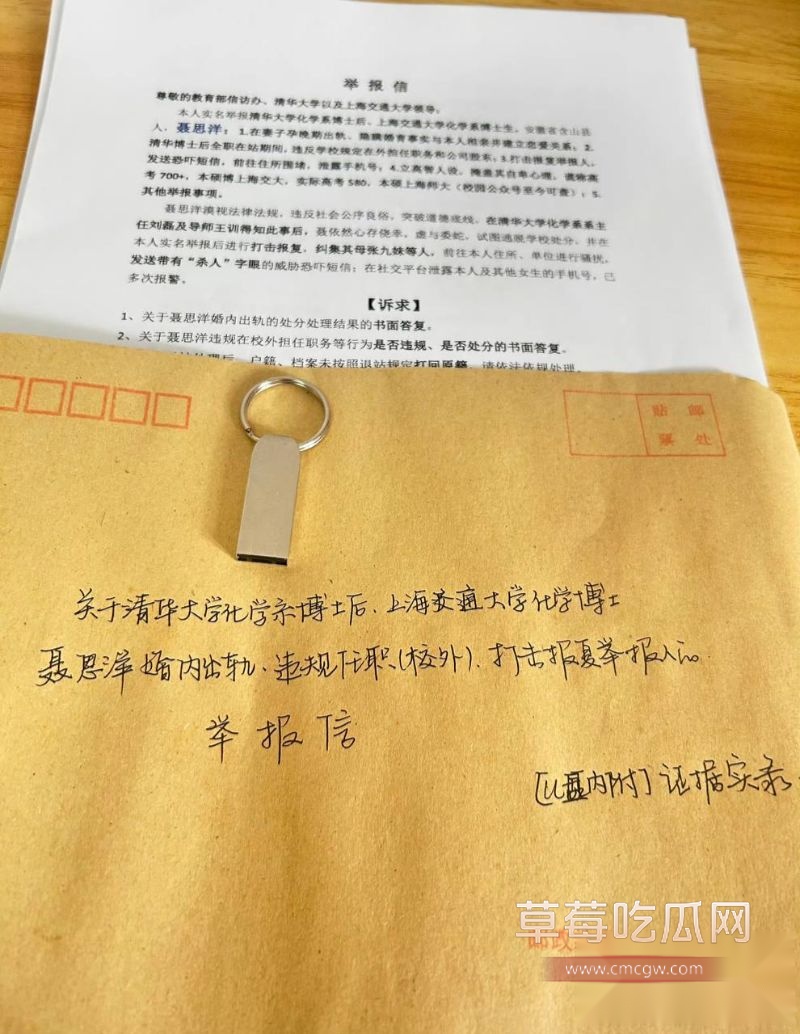 举 报 信
尊敬的教育部信访办、清华大学以及上海交通大学领导：
本人实名举报清华大学化学系博士后、上海交通大学化学系博士生，安徽省含山县
人，聂思洋：1.在妻子孕晚期出轨、隐瞒婚育事实与本人相亲并建立恋爱关系；2.
清华博士后全职在站期间，违反学校规定在外担任职务和公司股东；3.打击报复举报人，
发送恐吓短信，前往住所围堵，泄露手机号；4.立高智人设，掩盖其自卑心理，谎称高
考700+，本硕博上海交大，实际高考580，本硕上海师大（校园公众号至今可查）；5.
其他举报事项。
聂思洋漠视法律法规，违反社会公序良俗，突破道德底线，在清华大学化学系系主
任刘磊及导师王训得知此事后，聂依然心存侥幸，虚与委蛇，试图逃脱学校处分，并在
本人实名举报后进行打击报复，纠集其母张九妹等人，前往本人住所、单位进行骚扰，
发送带有“杀人”字眼的威胁恐吓短信；在社交平台泄露本人及其他女生的手机号，已
多次报警。
【诉求】
1、关于聂思洋婚内出轨的处分处理结果的书面答复。
2、关于聂思洋违规在校外担任职务等行为是否违规、是否处分的书面答复。
处理后，户籍、档案未按照退站规定打回原籍，请依法依规处理。
贴 邮
票 处
关于清华大学化学系博士后、上海交通大学化学博士
聂思洋婚内出轨、违规任职(校外)、打击报复举报人的
举 报 信
[U盘内附] 证据实录
邮政
草莓吃瓜网
www.cmcgw.com